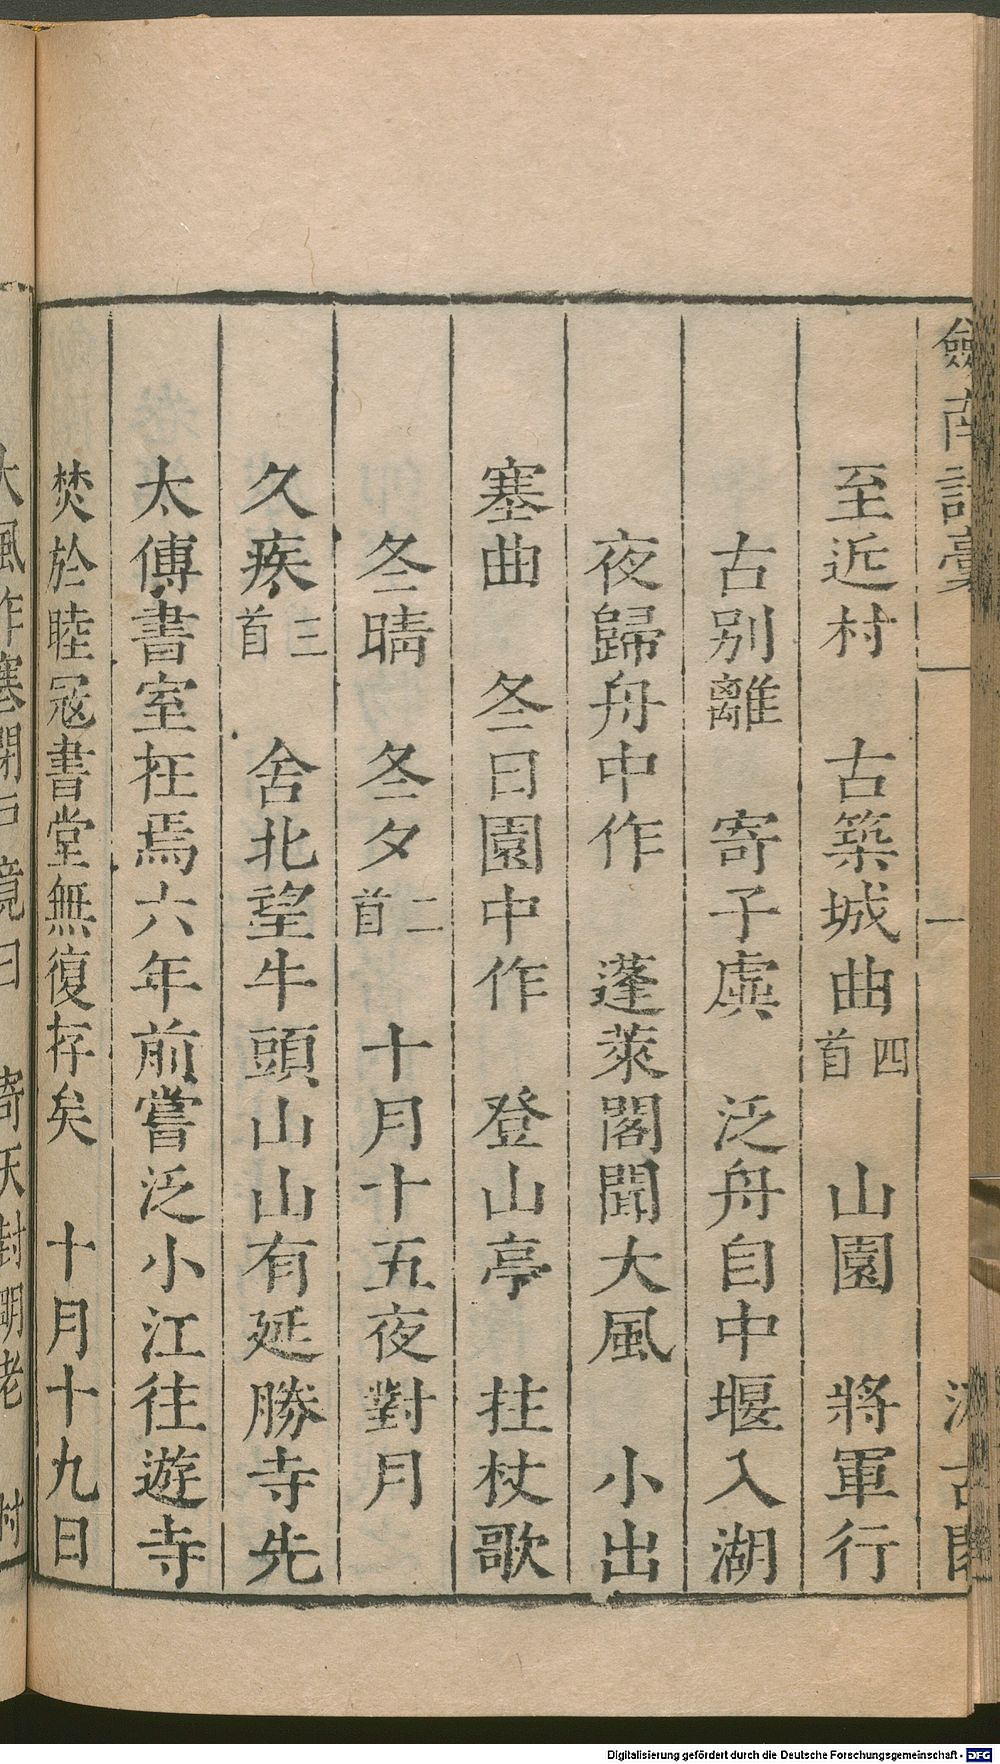 劒南詩稾 一
至近村 古築城曲四首 山園 將軍行
古別離 寄子虡 泛舟自中堰入湖
夜歸舟中作 蓬萊閣聞大風 小出
塞曲 冬日園中作 登山亭 拄杖歌
冬晴 冬夕二首 十月十五夜對月
久疾三首 舍北望牛頭山山有延勝寺先
太傅書室在焉六年前嘗泛小江往遊寺
焚於睦寇書堂無復存矣 十月十九日
大風作寒閉戸竟日 寄天封明老 村
Digitalisierung gefördert durch die Deutsche Forschungsgemeinschaft - DFG